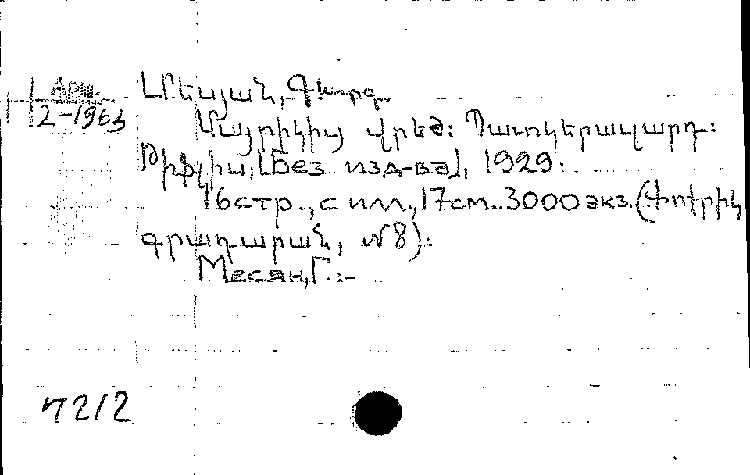 ԱՐՄ.
2-1963
Մեսյան, Գևորգ
Մայրիկիս վրեժ: Պատկերազարդ:
Թիֆլիս, [Без изд-ва], 1929:
16 стр., с илл., 17см.. 3000 экз. (Փոքրիկ
գրադարան, № 8):
Месян, Г. :-
7212